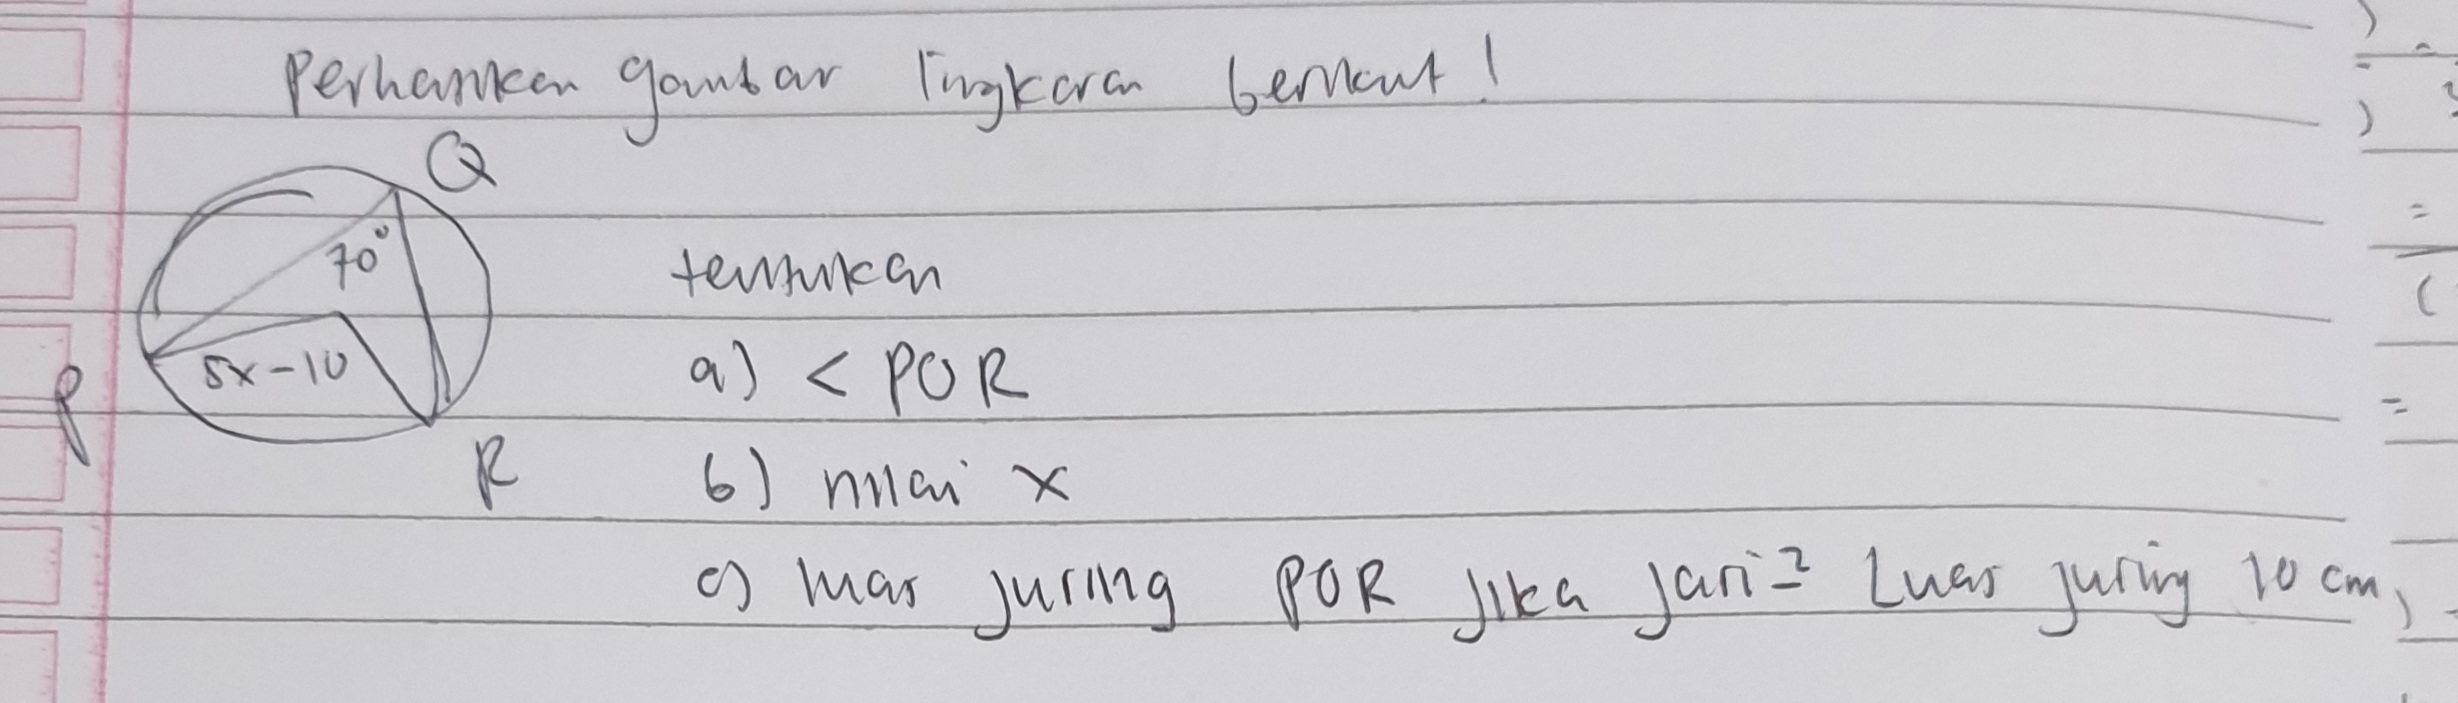 Perhatikan gambar lingkaran berikut!
Q
70°
tentukan
5x-10
a) < POR
P
R
b) nilai x
c) luas juring POR jika jari² Luas juring 10 cm